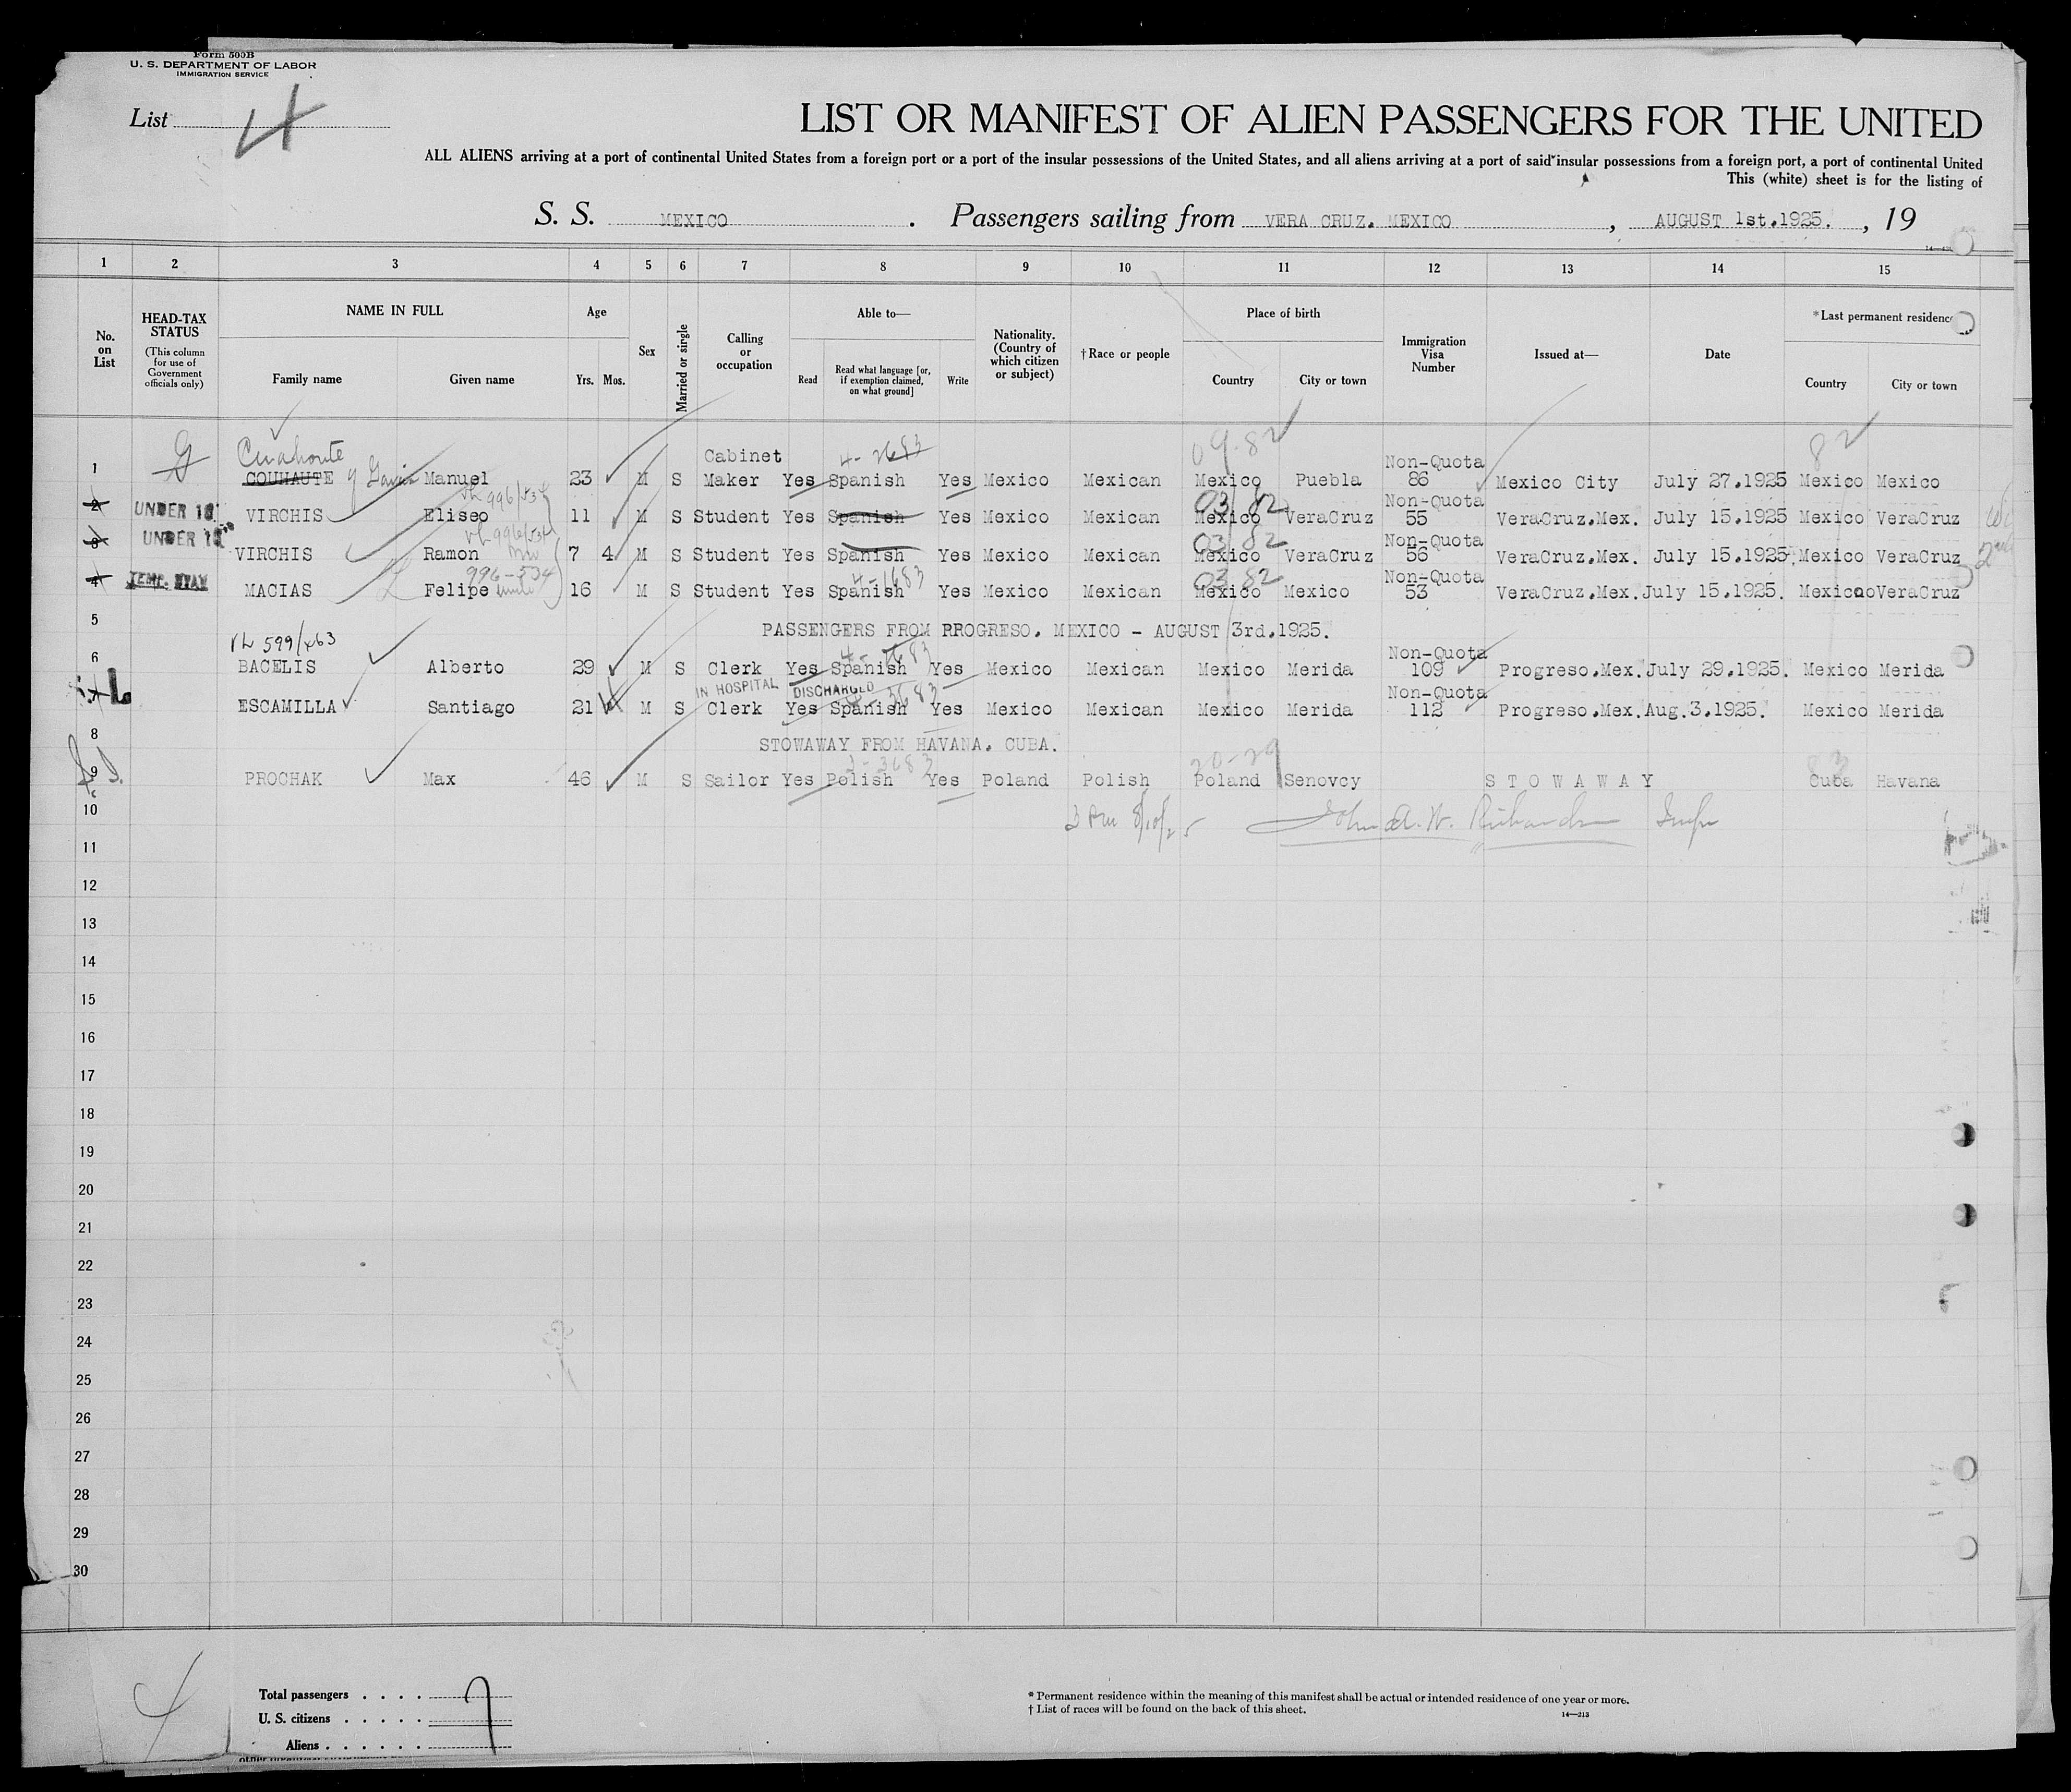 Form 500B
U. S. DEPARTMENT OF LABOR
IMMIGRATION SERVICE
List 4
LIST OR MANIFEST OF ALIEN PASSENGERS FOR THE UNITED
ALL ALIENS arriving at a port of continental United States from a foreign port or a port of the insular possessions of the United States, and all aliens arriving at a port of said insular possessions from a foreign port, a port of continental United
This (white) sheet is for the listing of
S. S. MEXICO. Passengers sailing from VERA CRUZ. MEXICO, AUGUST 1st.1925., 19
1 2 3 4 5 6 7 8 9 10 11 12 13 14 15
No. on List
HEAD-TAX STATUS
(This column for use of Government officials only)
NAME IN FULL
Family name Given name
Age
Yrs. Mos.
Sex
Married or single
Calling or occupation
Able to—
Read
Read what language [or, if exemption claimed, on what ground]
Write
Nationality. (Country of which citizen or subject)
†Race or people
Place of birth
Country City or town
Immigration Visa Number
Issued at—
Date
*Last permanent residence
Country City or town
09-82 82
Cabinet 4-2683 Non-Quota
1 COUHAUTE Manuel 23 M S Maker Yes Spanish Yes Mexico Mexican Mexico Puebla 86 Mexico City July 27.1925 Mexico Mexico
03 82 Non-Quota
2 UNDER 16 VIRCHIS Eliseo 11 M S Student Yes Spanish Yes Mexico Mexican Mexico VeraCruz 55 VeraCruz.Mex. July 15.1925 Mexico VeraCruz
03 82 Non-Quota
3 UNDER 16 VIRCHIS Ramon 7 4 M S Student Yes Spanish Yes Mexico Mexican Mexico VeraCruz 56 VeraCruz.Mex. July 15.1925 Mexico VeraCruz
996-534 4-1683 03 82 Non-Quota
4 TEMP. STAY MACIAS Felipe 16 M S Student Yes Spanish Yes Mexico Mexican Mexico Mexico 53 VeraCruz.Mex. July 15.1925. Mexico VeraCruz
5 PASSENGERS FROM PROGRESO. MEXICO - AUGUST 3rd.1925.
599/463 Non-Quota
6 BACELIS Alberto 29 M S Clerk Yes Spanish Yes Mexico Mexican Mexico Merida 109 Progreso.Mex. July 29.1925. Mexico Merida
IN HOSPITAL DISCHARGED Non-Quota
7 ESCAMILLA Santiago 21 M S Clerk Yes Spanish Yes Mexico Mexican Mexico Merida 112 Progreso.Mex. Aug.3.1925. Mexico Merida
8 STOWAWAY FROM HAVANA. CUBA.
3-3683 20-29 83
9 PROCHAK Max 46 M S Sailor Yes Polish Yes Poland Polish Poland Senovcy STOWAWAY Cuba Havana
10 John A. W. Richardson Insp
11
12
13
14
15
16
17
18
19
20
21
22
23
24
25
26
27
28
29
30
Total passengers . . . .
U. S. citizens . . . . .
Aliens . . . . . .
4
7
* Permanent residence within the meaning of this manifest shall be actual or intended residence of one year or more.
† List of races will be found on the back of this sheet.
14—213